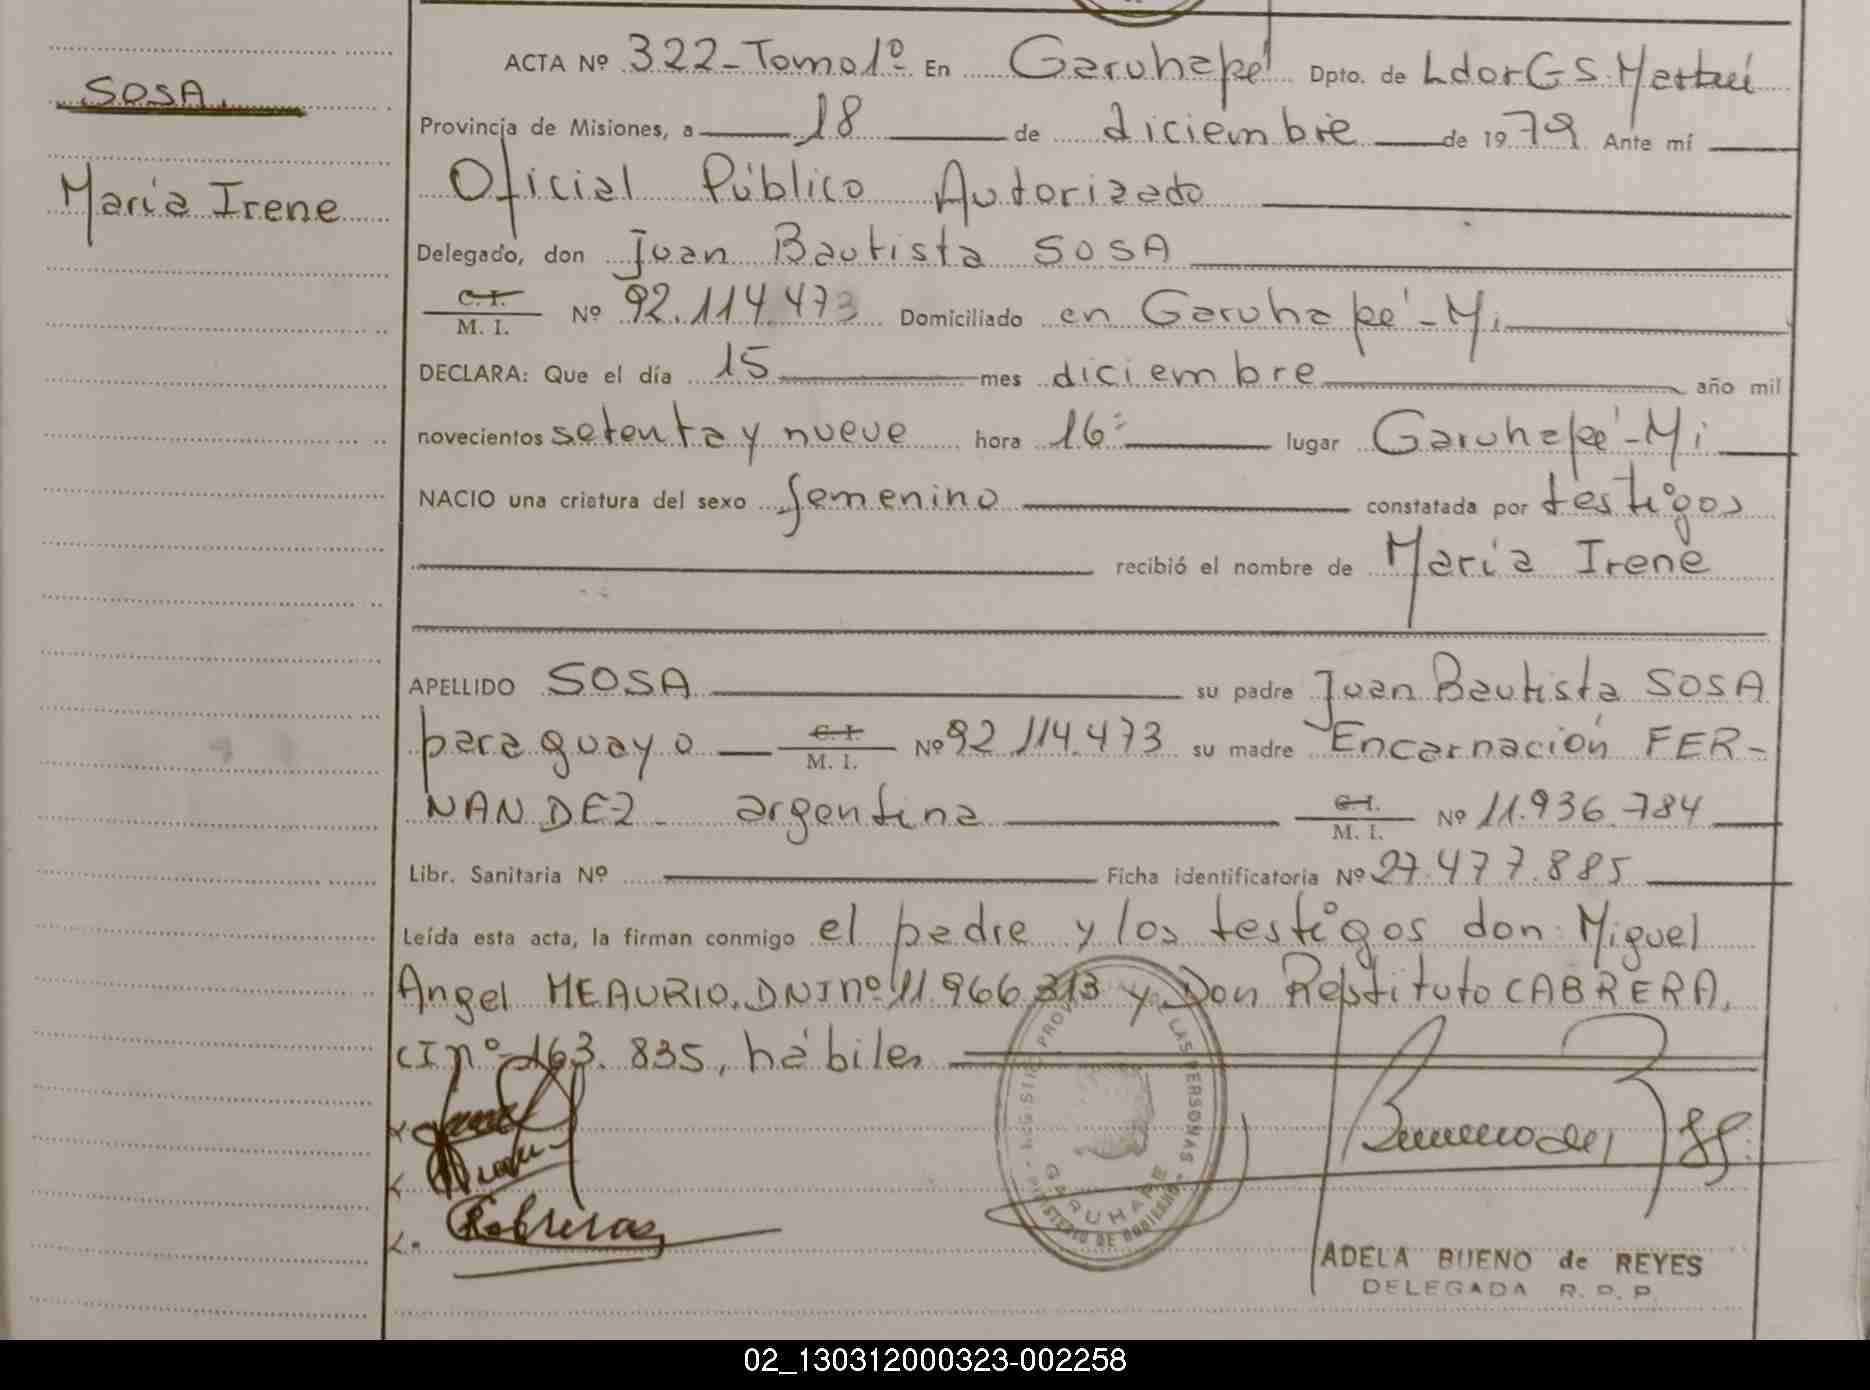 SOSA
María Irene
ACTA Nº 322-Tomo 1º En Garuhapé Dpto. de LdorGS.Martín
Provincia de Misiones, a 18 de diciembre de 1979 Ante mí
Oficial Público Autorizado
Delegado, don Juan Bautista SOSA
C.I.
M. I. Nº 92.114.473 Domiciliado en Garuhapé-Mi
DECLARA: Que el día 15 mes diciembre año mil
novecientos setenta y nueve hora 16= lugar Garuhapé-Mi
NACIO una criatura del sexo femenino constatada por testigos
recibió el nombre de María Irene
APELLIDO SOSA su padre Juan Bautista SOSA
paraguayo C.I.
M. I. Nº 92.114.473 su madre Encarnación FER-
NANDEZ - argentina C.I.
M. I. Nº 11.936.784
Libr. Sanitaria Nº Ficha identificatoria Nº 27.477.885
Leída esta acta, la firman conmigo el padre y los testigos don Miguel
Angel MEAURIO, DNI nº 11.966.313 y Don Restituto CABRERA,
CI nº 163.835, hábiles
REGISTRO PROVINCIAL DE LAS PERSONAS
GARUHAPE
MINISTERIO DE GOBIERNO
ADELA BUENO de REYES
DELEGADA R. P. P.
02_130312000323-002258